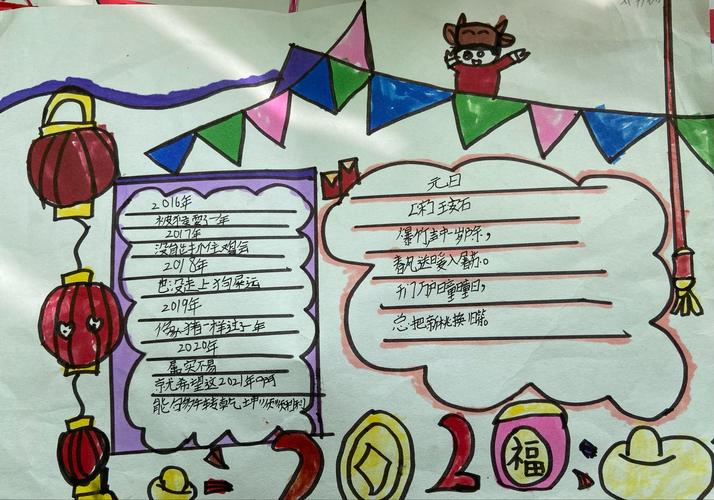 2016年
被猴耍了一年
2017年
没有抓住机会
2018年
也没走上狗屎运
2019年
像猪一样过了一年
2020年
属实不易
就希望这2021年
能牛转乾
元日
[宋]王安石
爆竹声中一岁除,
春风送暖入屠苏。
千门万户曈曈日,
总把新桃换旧符。
福